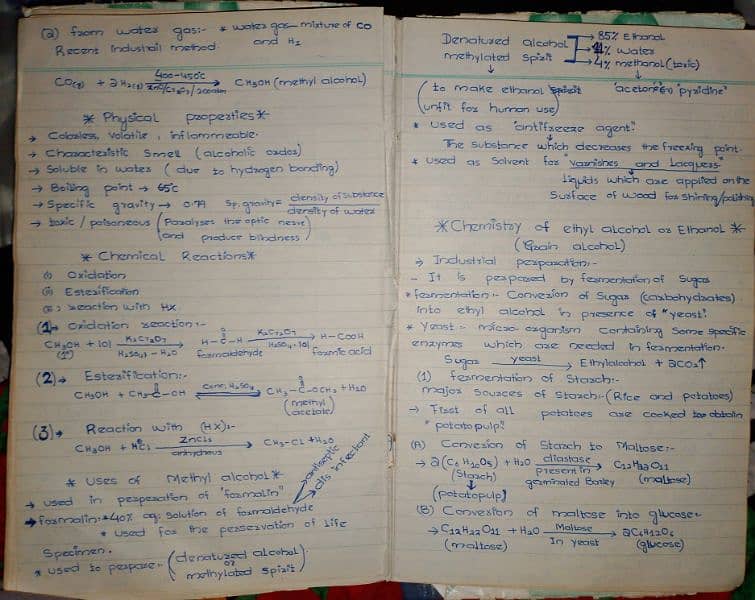 (2) from water gas:- * water gas - mixture of CO and H2
Recent Industrial method.
CO(g) + 2H2(g) 400-450°c / 200atm → CH3OH (methyl alcohol)
* Physical properties *
→ Colorless, volatile, inflammeable.
→ Characteristic Smell (alcoholic oxdor)
→ Soluble in water (due to hydrogen bonding)
→ Boiling point → 65°c
→ Specific gravity → 0.79 Sp. gravity = density of substance / density of water
→ toxic / poisoneous (Paralyses the optic nerve and produce blindness)
* Chemical Reactions *
(i) Oxidation
(ii) Esterification
(iii) reaction with HX
(1) → Oxidation reaction:-
CH3OH + [O] K2Cr2O7 / H2SO4, -H2O → H-C-H O K2Cr2O7 / H2SO4, [O] → H-COOH
(1°) formaldehyde formic acid
(2) → Esterification:-
CH3OH + CH3-C-OH O Conc. H2SO4 → CH3-C-OCH3 + H2O O
(methyl acetate)
(3) → Reaction with (HX):-
CH3OH + HCl ZnCl2 / anhydrous → CH3-Cl + H2O
* Uses of Methyl alcohol *
antiseptic
dis infectant
→ used in preperation of "formalin"
→ formalin:- * 40% aq. Solution of formaldehyde
* used for the perservation of life
Specimen.
* used to prepare- (denatured alcohol or methylated spirit)
Denatured alcohol → 85% Ethanol
methylated spirit → 11% water
→ 4% methanol (toxic)
(to make ethanol spirit "acetone (or) pyridine"
unfit for human use)
* used as "antifreeze agent"
The substance which decreases the freezing point.
* used as Solvent for "varnishes and Lacquers"
Liquids which are applied on the
Surface of wood for shining/polishing
* Chemistry of ethyl alcohol or Ethanol *
(Grain alcohol)
→ Industrial perparation:-
- It is perpared by fermentation of Sugar
* fermentation:- Conversion of Sugar (carbohydrates)
Into ethyl alcohol in presence of "yeast".
* Yeast:- micro-organism containing Some specific
enzymes which are needed in fermentation.
Sugar yeast → Ethylalcohol + 2CO2↑
(1) fermentation of Starch:-
major Sources of Starch:- (Rice and potatoes)
→ First of all potatoes are cooked to obtain
"potato pulp"
(A) Conversion of Starch to Maltose:-
→ 2(C6H10O5) + H2O diastase / present in germinated Barley → C12H22O11
(Starch) (maltose)
(potatopulp)
(B) Conversion of maltose into glucose:-
→ C12H22O11 + H2O Maltose / In yeast → 2C6H12O6
(maltose) (glucose)